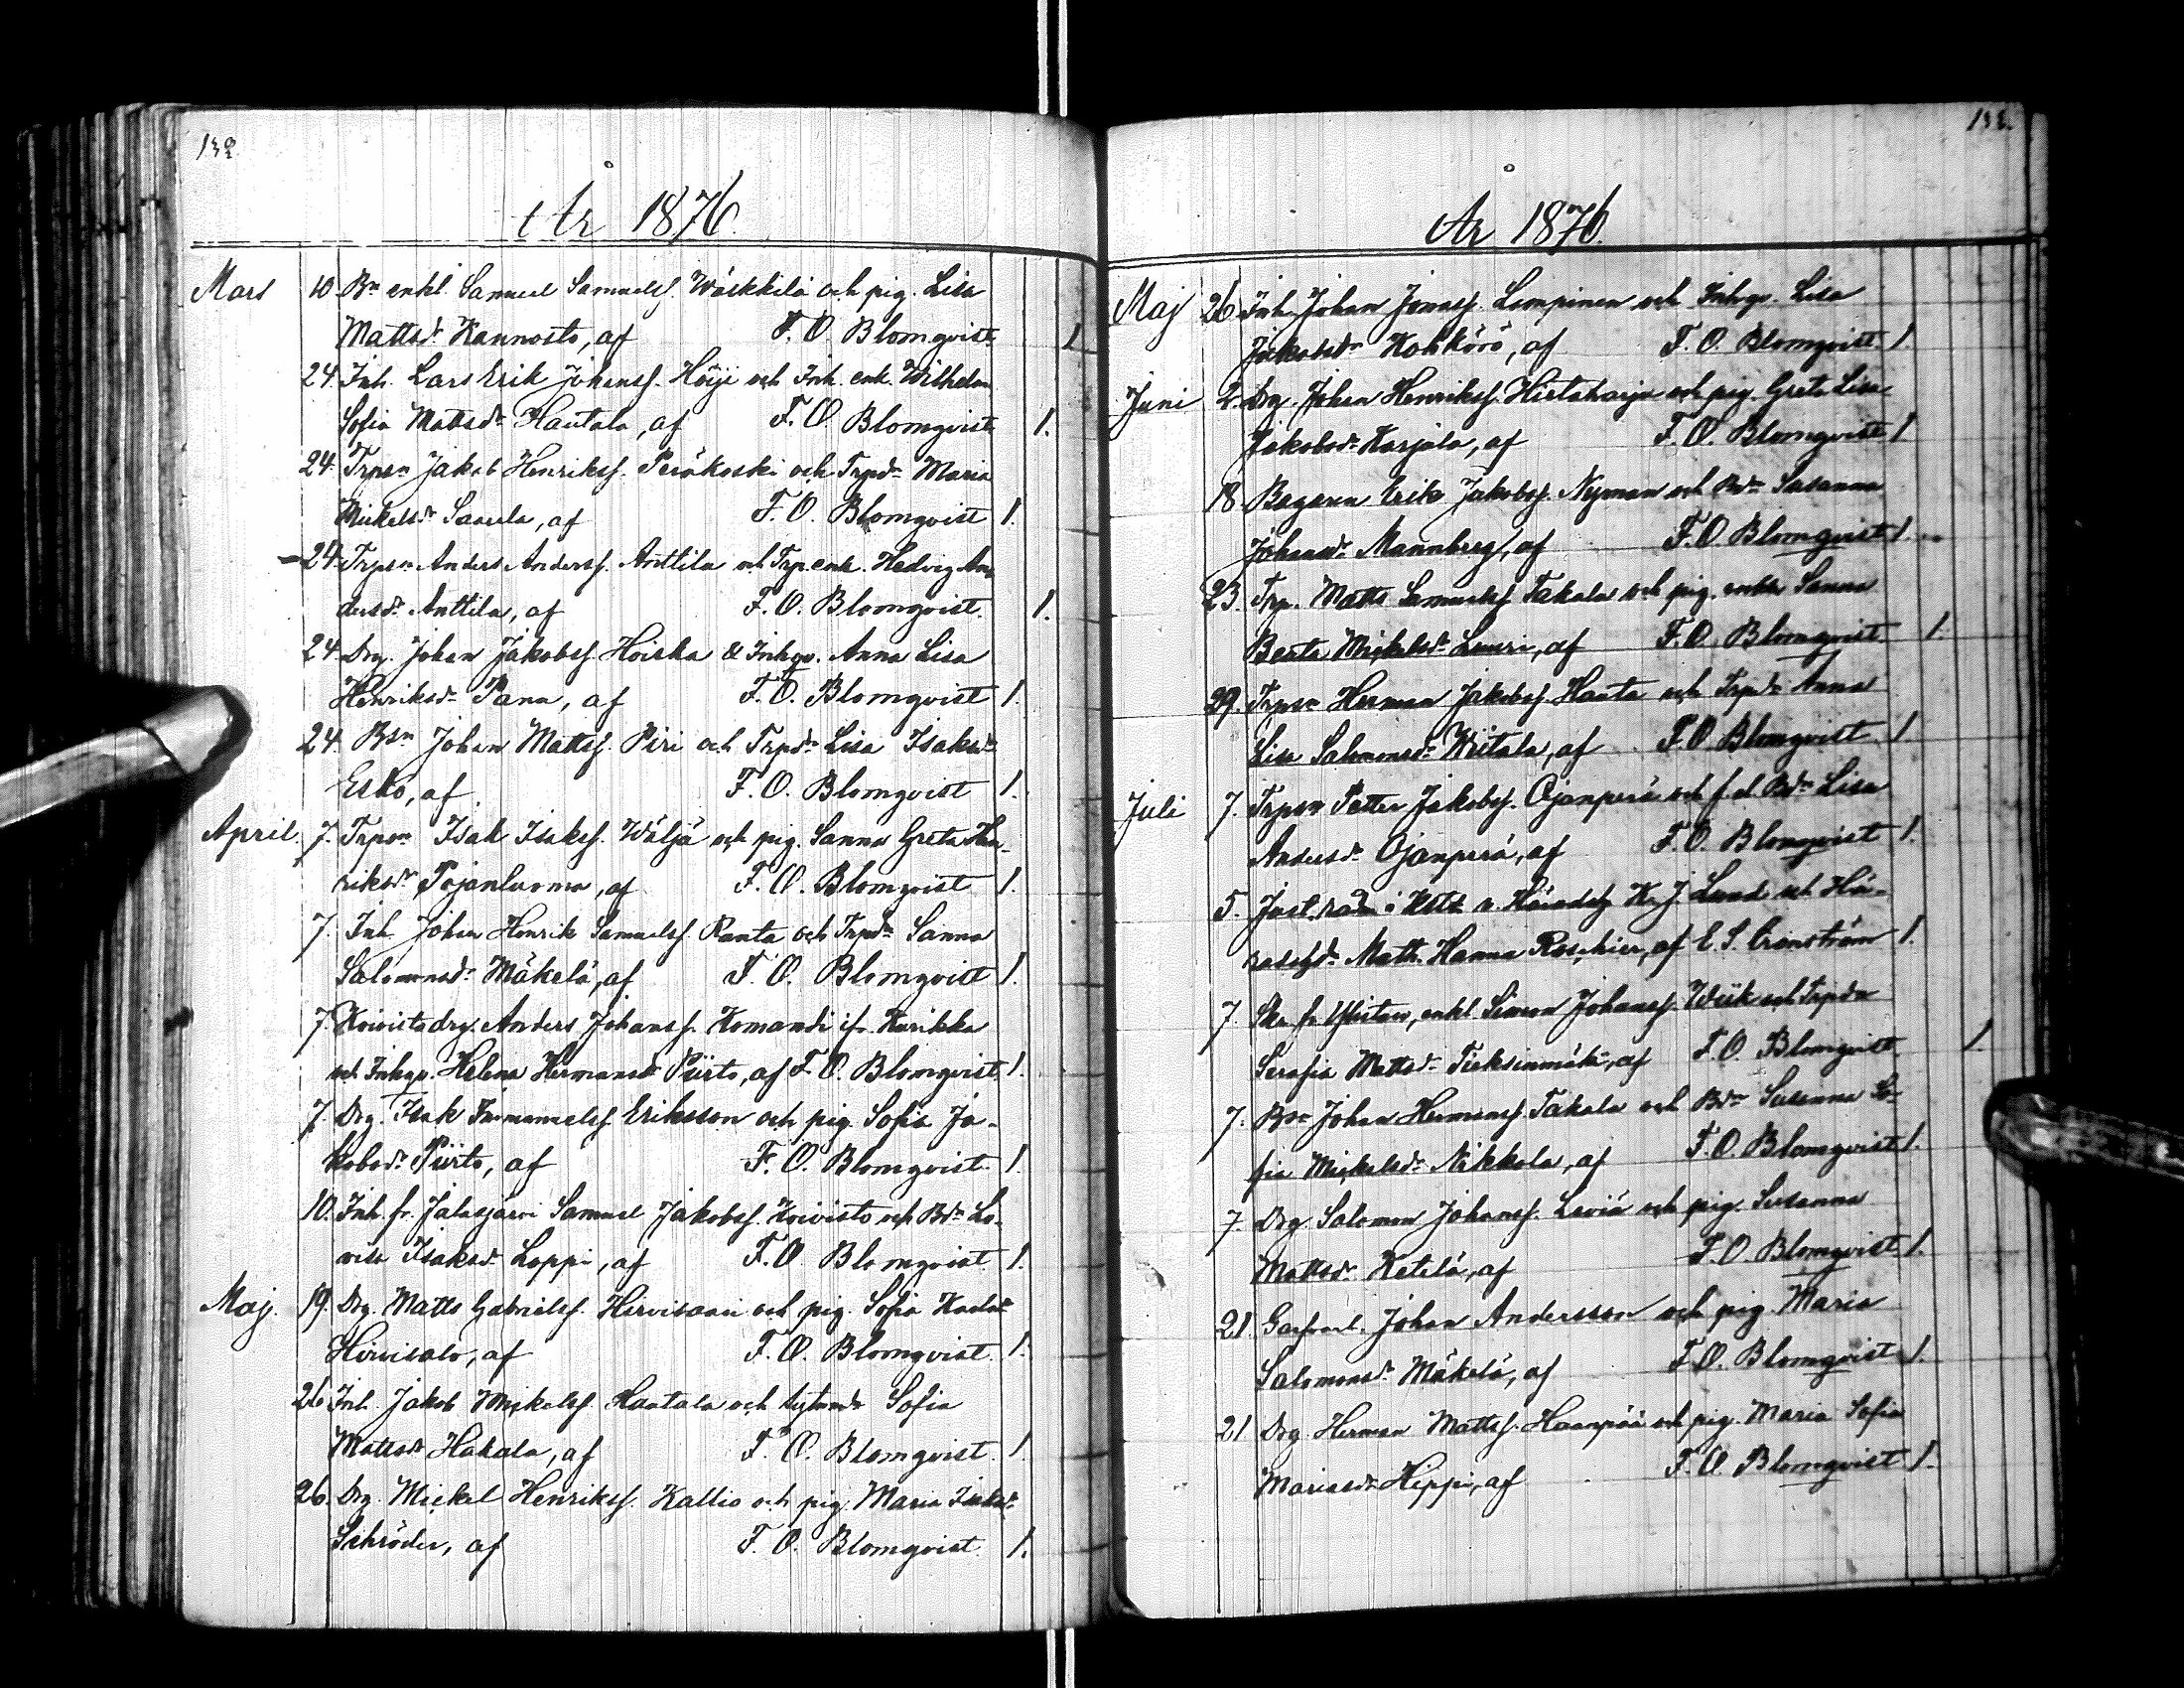 132.
År 1876.
Mars 10. Bn enkl. Samuel Samuelss. Wäskkilä och pig. Lisa
Mattsdr Kannosto, af F. O. Blomqvist 1
24. Inh. Lars Erik Johanss. Höiji och Inh. enk. Wilhelm.
Sofia Mattsdr Hautala, af F. O. Blomqvist 1.
24. Trpsn Jakob Henrikss. Peräkoski och Trpdr Maria
Mickelsdr Saarela, af F. O. Blomqvist 1.
24. Trpsn Anders Anderss. Anttila och Trp. enk. Hedvig An-
dersdr Anttila, af F. O. Blomqvist. 1.
24. Drg. Johan Jakobss. Hoiska & Inhqv. Anna Lisa
Henriksdr Pana, af F. O. Blomqvist 1.
24. Bsn Johan Mattss. Piri och Trpdr Lisa Isaksdr
Esko, af F. O. Blomqvist 1.
April. 7. Trpsn Isak Isakss. Wäljä och pig. Sanna Greta Hen-
riksdr Pojanluoma, af F. O. Blomqvist 1.
7. Inh. Johan Henrik Samuelss. Ranta och Trpdr Sanna
Salomonsdr Mäkelä, af F. O. Blomqvist 1.
7. Koivisto drg. Anders Johanss. Komandi ifr. Kurikka
och Inhqv. Helena Hermansdr Piirto, af F. O. Blomqvist. 1.
7. Drg. Isak Immanuelss. Eriksson och pig. Sofia Ja-
kobsdr Piirto, af F. O. Blomqvist. 1.
10. Inh. fr. Jalasjärvi Samuel Jakobss. Koivisto och Bdr Lo-
visa Isaksdr Loppi, af F. O. Blomqvist 1.
Maj. 19. Drg. Matts Gabrielss. Hirvisaari och pig. Sofia Karlsdr
Hirvisalo, af F. O. Blomqvist. 1.
26. Inh. Jakob Mickelss. Hautala och Sofia
Mattsdr Hakala, af F. O. Blomqvist. 1.
26. Drg. Mickel Henrikss. Kallio och pig. Maria Isaksdr
Schröder, af F. O. Blomqvist. 1.
133.
År 1876.
Maj 26. Inh. Johan Jonass. Lempinen och Inhqv. Lisa
Jakobsdr Kohkörö, af F. O. Blomqvist. 1.
Juni 2. Drg. Johan Henrikss. Hietaharju och pig. Greta Lisa
Jakobsdr Karjala, af F. O. Blomqvist 1
18. Bagaren Erik Jakobss. Nyman och Bdr Susanna
Johansdr Mannberg, af F. O. Blomqvist 1.
23. Trp. Matts Samuelss. Takala och pig. enkan Sanna
Beata Mickelsdr Lauri, af F. O. Blomqvist 1.
29. Trpsn Herman Jakobss. Hauta och Trpdr Anna
Lisa Salomonsdr Wiitala, af F. O. Blomqvist. 1
Juli 7. Trpsn Petter Jakobss. Ojanperä och f. d. Bdr Lisa
Andersdr Ojanperä, af F. O. Blomqvist 1.
5. Just. rådm. i v. Häradsh. K. J. Lund och Hä-
radshdr Math. Hanna Roschier, af E. S. Cranström 1.
7. Skr. fr. enkl. Simon Johanss. Wiik och Trpdr
Serafia Mattsdr Tieksinmäki, af F. O. Blomqvist. 1.
7. Bsn Johan Hermanss. Takala och Bdr Susanna So-
fia Mickelsdr Nikkola, af F. O. Blomqvist 1.
7. Drg. Salomon Johanss. Leviä och pig. Susanna
Mattsdr Ketelä, af F. O. Blomqvist. 1.
21. Johan Andersson och pig. Maria
Salomonsdr Mäkelä, af F. O. Blomqvist 1.
21. Drg. Herman Mattss. Haanpää och pig. Maria Sofia
Mariasdr Hippi, af F. O. Blomqvist 1.